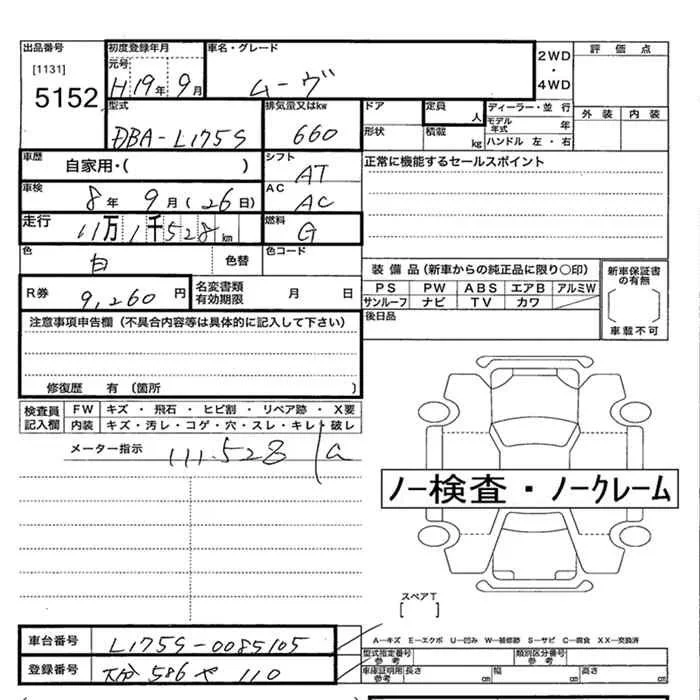 出品番号 初度登録年月 車名・グレード 2WD・4WD 評価点
[1131] 元号
5152 H 19年 9月 ムーヴ
型式 排気量又はkw ドア 定員 人 ディーラー・並行 外装 内装
DBA-L175S 660 形状 積載 kg モデル年式 年
ハンドル 左・右
車歴 自家用・( ) シフト AT 正常に機能するセールスポイント
車検 8年 9月(26日) AC AC
走行 11万1千528km 燃料 G
色 白 色替 色コード
装備品(新車からの純正品に限り○印) 新車保証書の有無
R券 9,260円 名変書類有効期限 月 日 PS PW ABS エアB アルミW
サンルーフ ナビ TV カワ [ ]
注意事項申告欄(不具合内容等は具体的に記入して下さい) 後日品 車載不可
修復歴 有(箇所 )
検査員記入欄 FW キズ・飛石・ヒビ割・リペア跡・X要
内装 キズ・汚レ・コゲ・穴・スレ・キレ・破レ
メーター指示 111.528
ノー検査・ノークレーム
スペアT
[ ]
車台番号 L175S-0085105 A―キズ E―エクボ U―凹み W―補修跡 S―サビ C―腐食 XX―交換済
型式指定番号参考 類別区分番号参考
登録番号 大分 586 や 110 車庫証明用参考 長さ cm 幅 cm 高さ cm